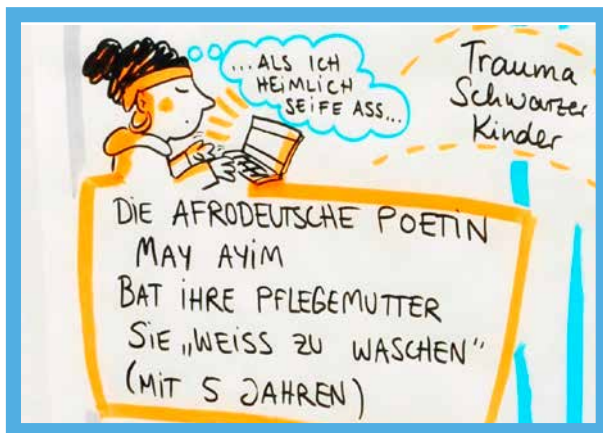 ...ALS ICH
HEIMLICH
SEIFE ASS...
Trauma
Schwarzer
Kinder
DIE AFRODEUTSCHE POETIN
MAY AYIM
BAT IHRE PFLEGEMUTTER
SIE „WEISS ZU WASCHEN"
(MIT 5 JAHREN)